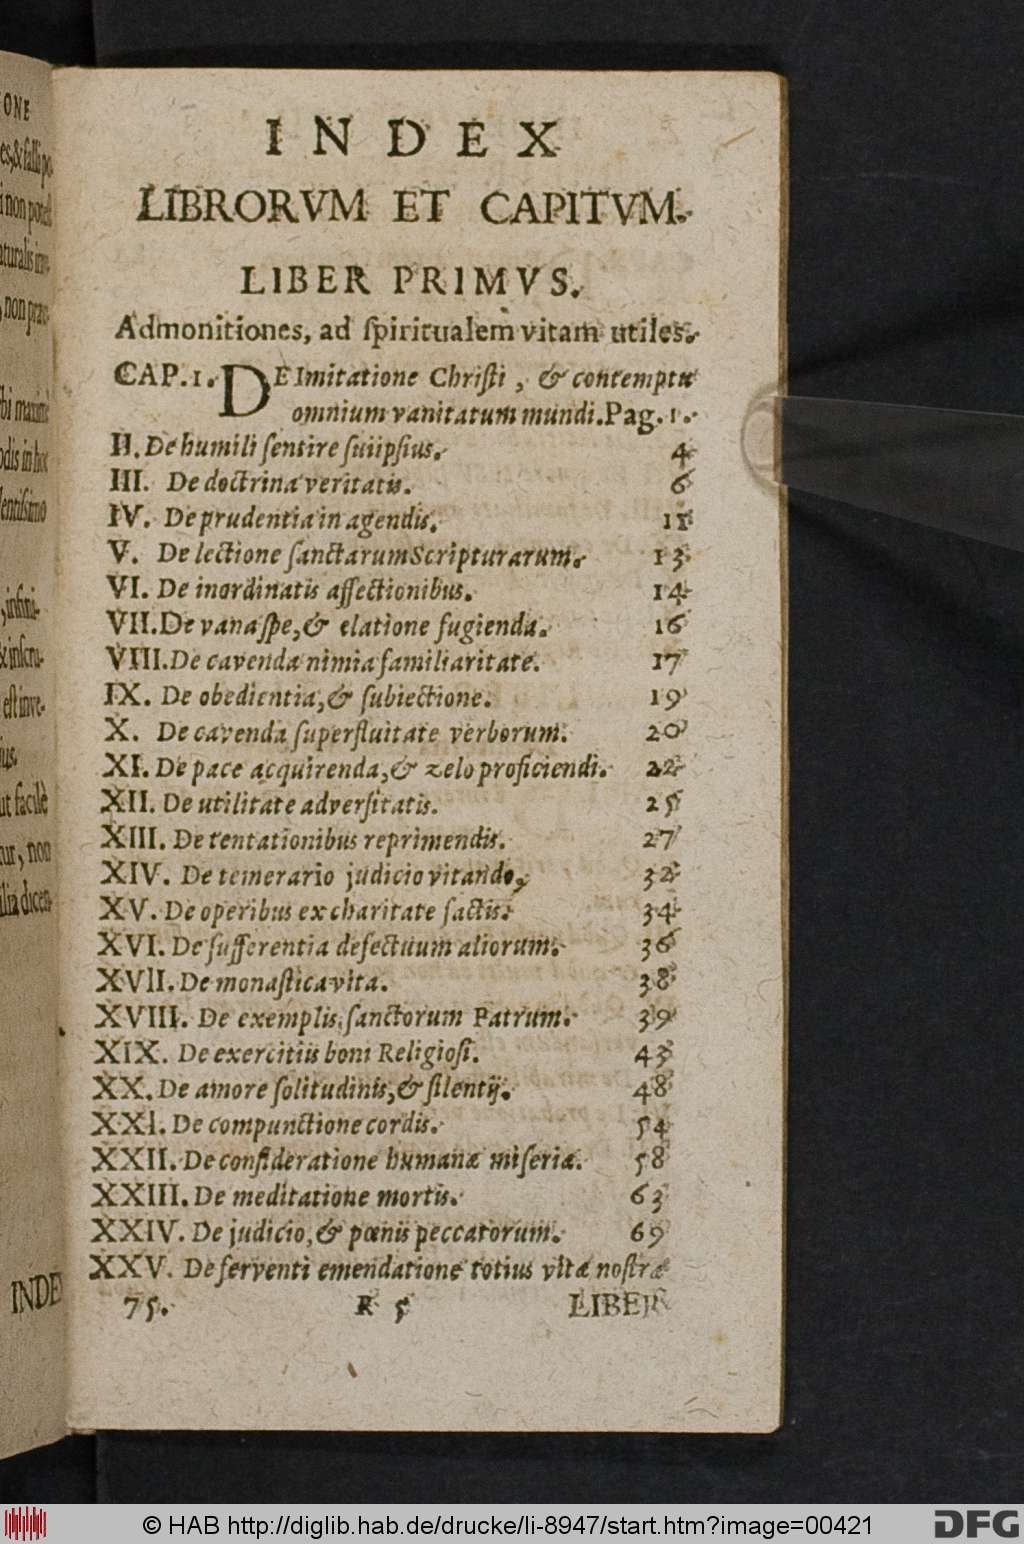 INDEX
LIBRORVM ET CAPITVM.
LIBER PRIMVS.
Admonitiones, ad spiritualem vitam utiles.
CAP. 1. DE Imitatione Christi, & contemptu
omnium vanitatum mundi. Pag. 1.
II. De humili sentire suiipsius. 4
III. De doctrina veritatis. 6
IV. De prudentia in agendis. 11
V. De lectione sanctarum Scripturarum. 13
VI. De inordinatis affectionibus. 14
VII. De vana spe, & elatione fugienda. 16
VIII. De cavenda nimia familiaritate. 17
IX. De obedientia, & subiectione. 19
X. De cavenda superfluitate verborum. 20
XI. De pace acquirenda, & zelo proficiendi. 22
XII. De utilitate adversitatis. 25
XIII. De tentationibus reprimendis. 27
XIV. De temerario judicio vitando, 32
XV. De operibus ex charitate factis. 34
XVI. De sufferentia defectuum aliorum. 36
XVII. De monastica vita. 38
XVIII. De exemplis sanctorum Patrum. 39
XIX. De exercitiis boni Religiosi. 43
XX. De amore solitudinis, & silentij. 48
XXI. De compunctione cordis. 54
XXII. De consideratione humanæ miseriæ. 58
XXIII. De meditatione mortis. 63
XXIV. De judicio, & pœnis peccatorum. 69
XXV. De ferventi emendatione totius vitæ nostræ
75. R 5 LIBER
© HAB http://diglib.hab.de/drucke/li-8947/start.htm?image=00421
DFG